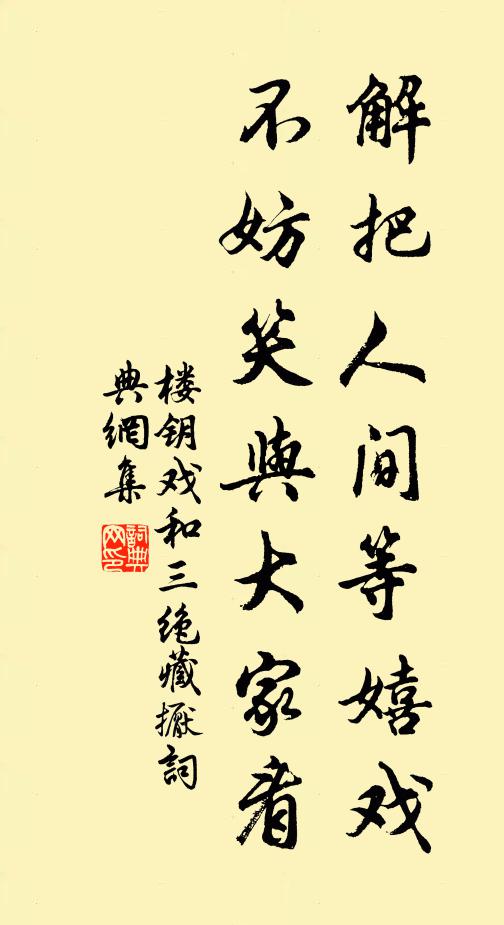 解把人间等嬉戏
不妨笑与大家看
楼钥戏和三绝藏擫词
典網集
詞典
网印